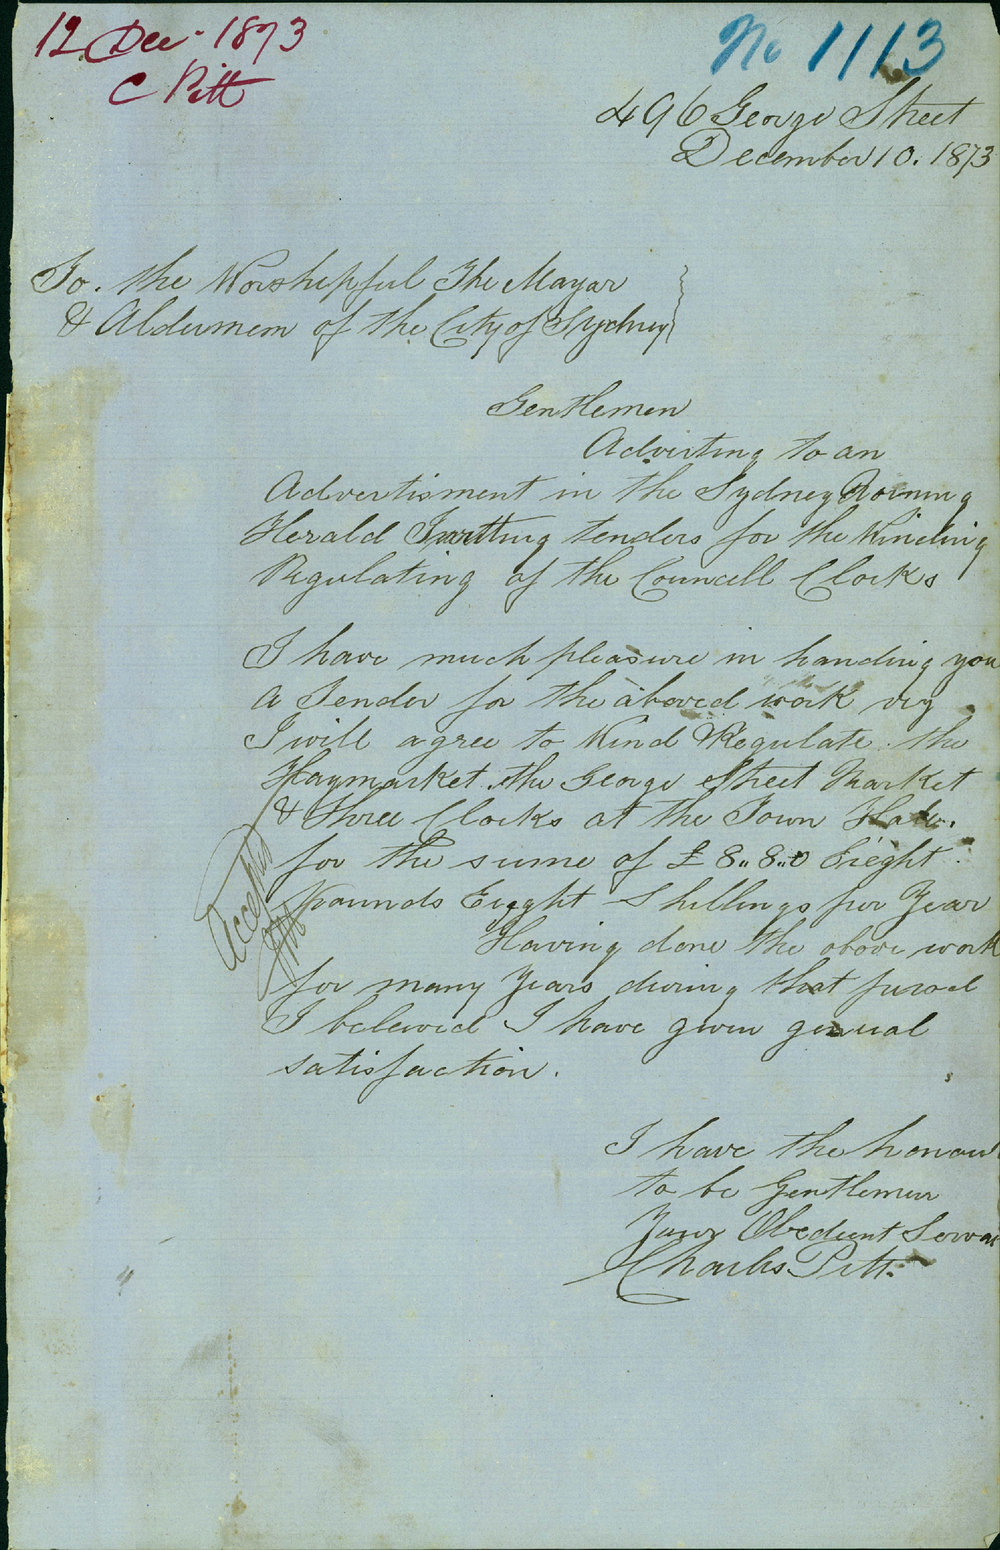 12 Dec. 1873
C Pitt
No 1113
496 George Street
December 10. 1873
To. the Worshepful The Mayor
& Aldermem of the City of Sydney
Gentlemen
Adverting to an
Advertisment in the Sydney Morning
Herald Inviting tenders for the Winding
Regulating of the Councell Clocks
I have much pleasure in handing you
a Tender for the aboved work viz
I will agree to Wind & Regulate the
Haymarket. the George Street Market
& Three Clocks at the Town Hall.
for the sume of £8,,8,,0 Eieght
Pounds Eigght Shillings per Year
Having done the above work
for many Years during that pured
I beleived I have given genual
satisfaction.
Accepted
I have the honour
to be Gentlemen
Your Obedient Serva
Charles Pitt.